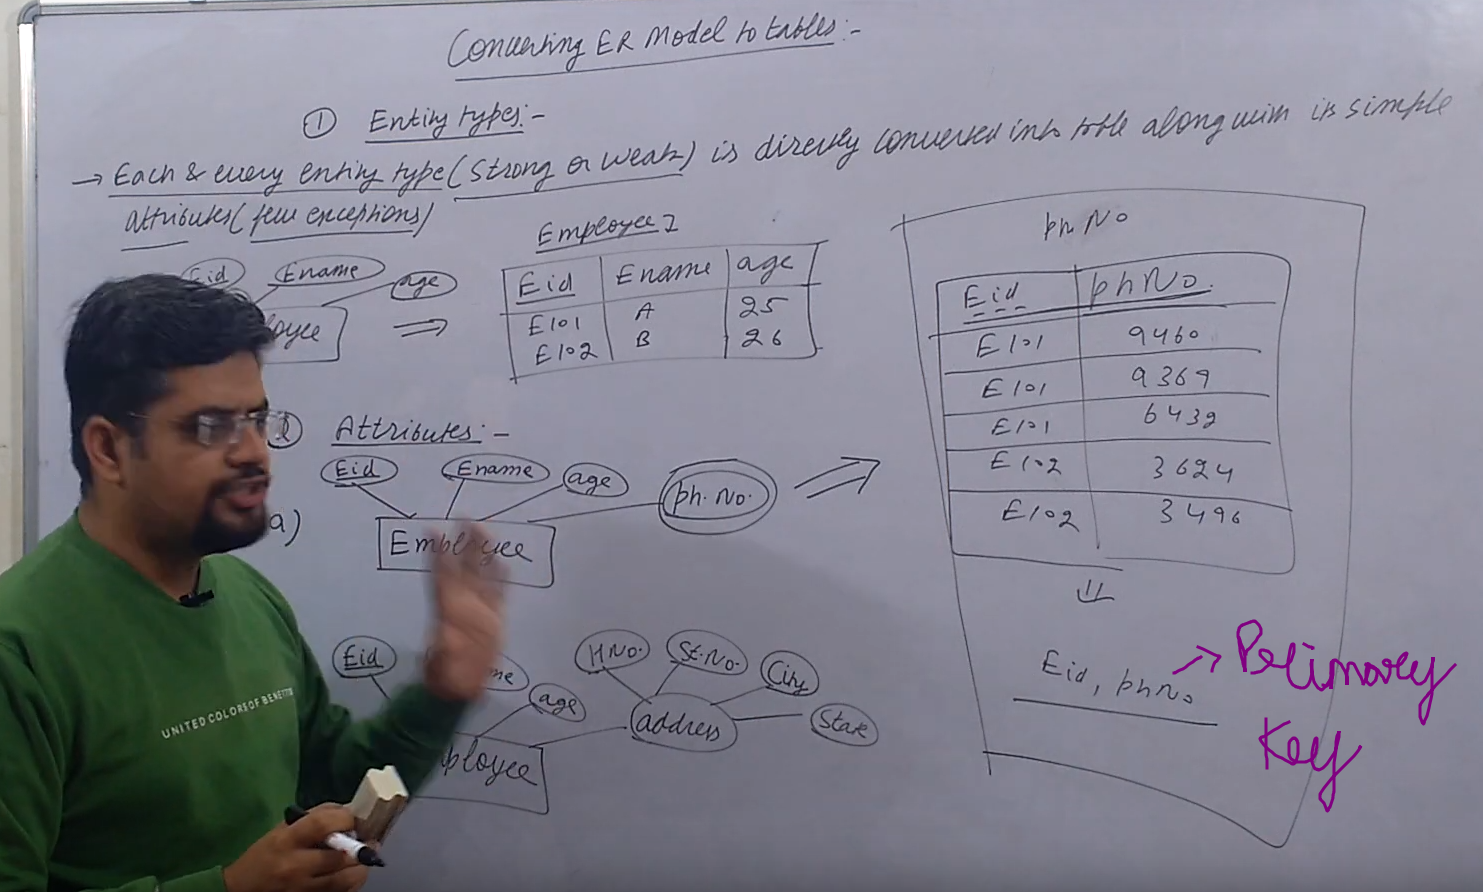 Converting ER Model to tables:-
① Entity types:-
→ Each & every entity type (strong or weak) is directly converted into table along with its simple
attributes (few exceptions)
Eid
Ename
age
⇒
Employee
Eid Ename age
E101 A 25
E102 B 26
Attributes:-
a)
Eid
Ename
age
ph. No.
Employee
⇒
ph No
Eid ph No.
E101 9460
E101 9369
E101 6439
E102 3624
E102 3496
Eid, ph No → Primary
Key
Eid
age
H No.
St. No.
City
State
address
UNITED COLORS OF BENETTON